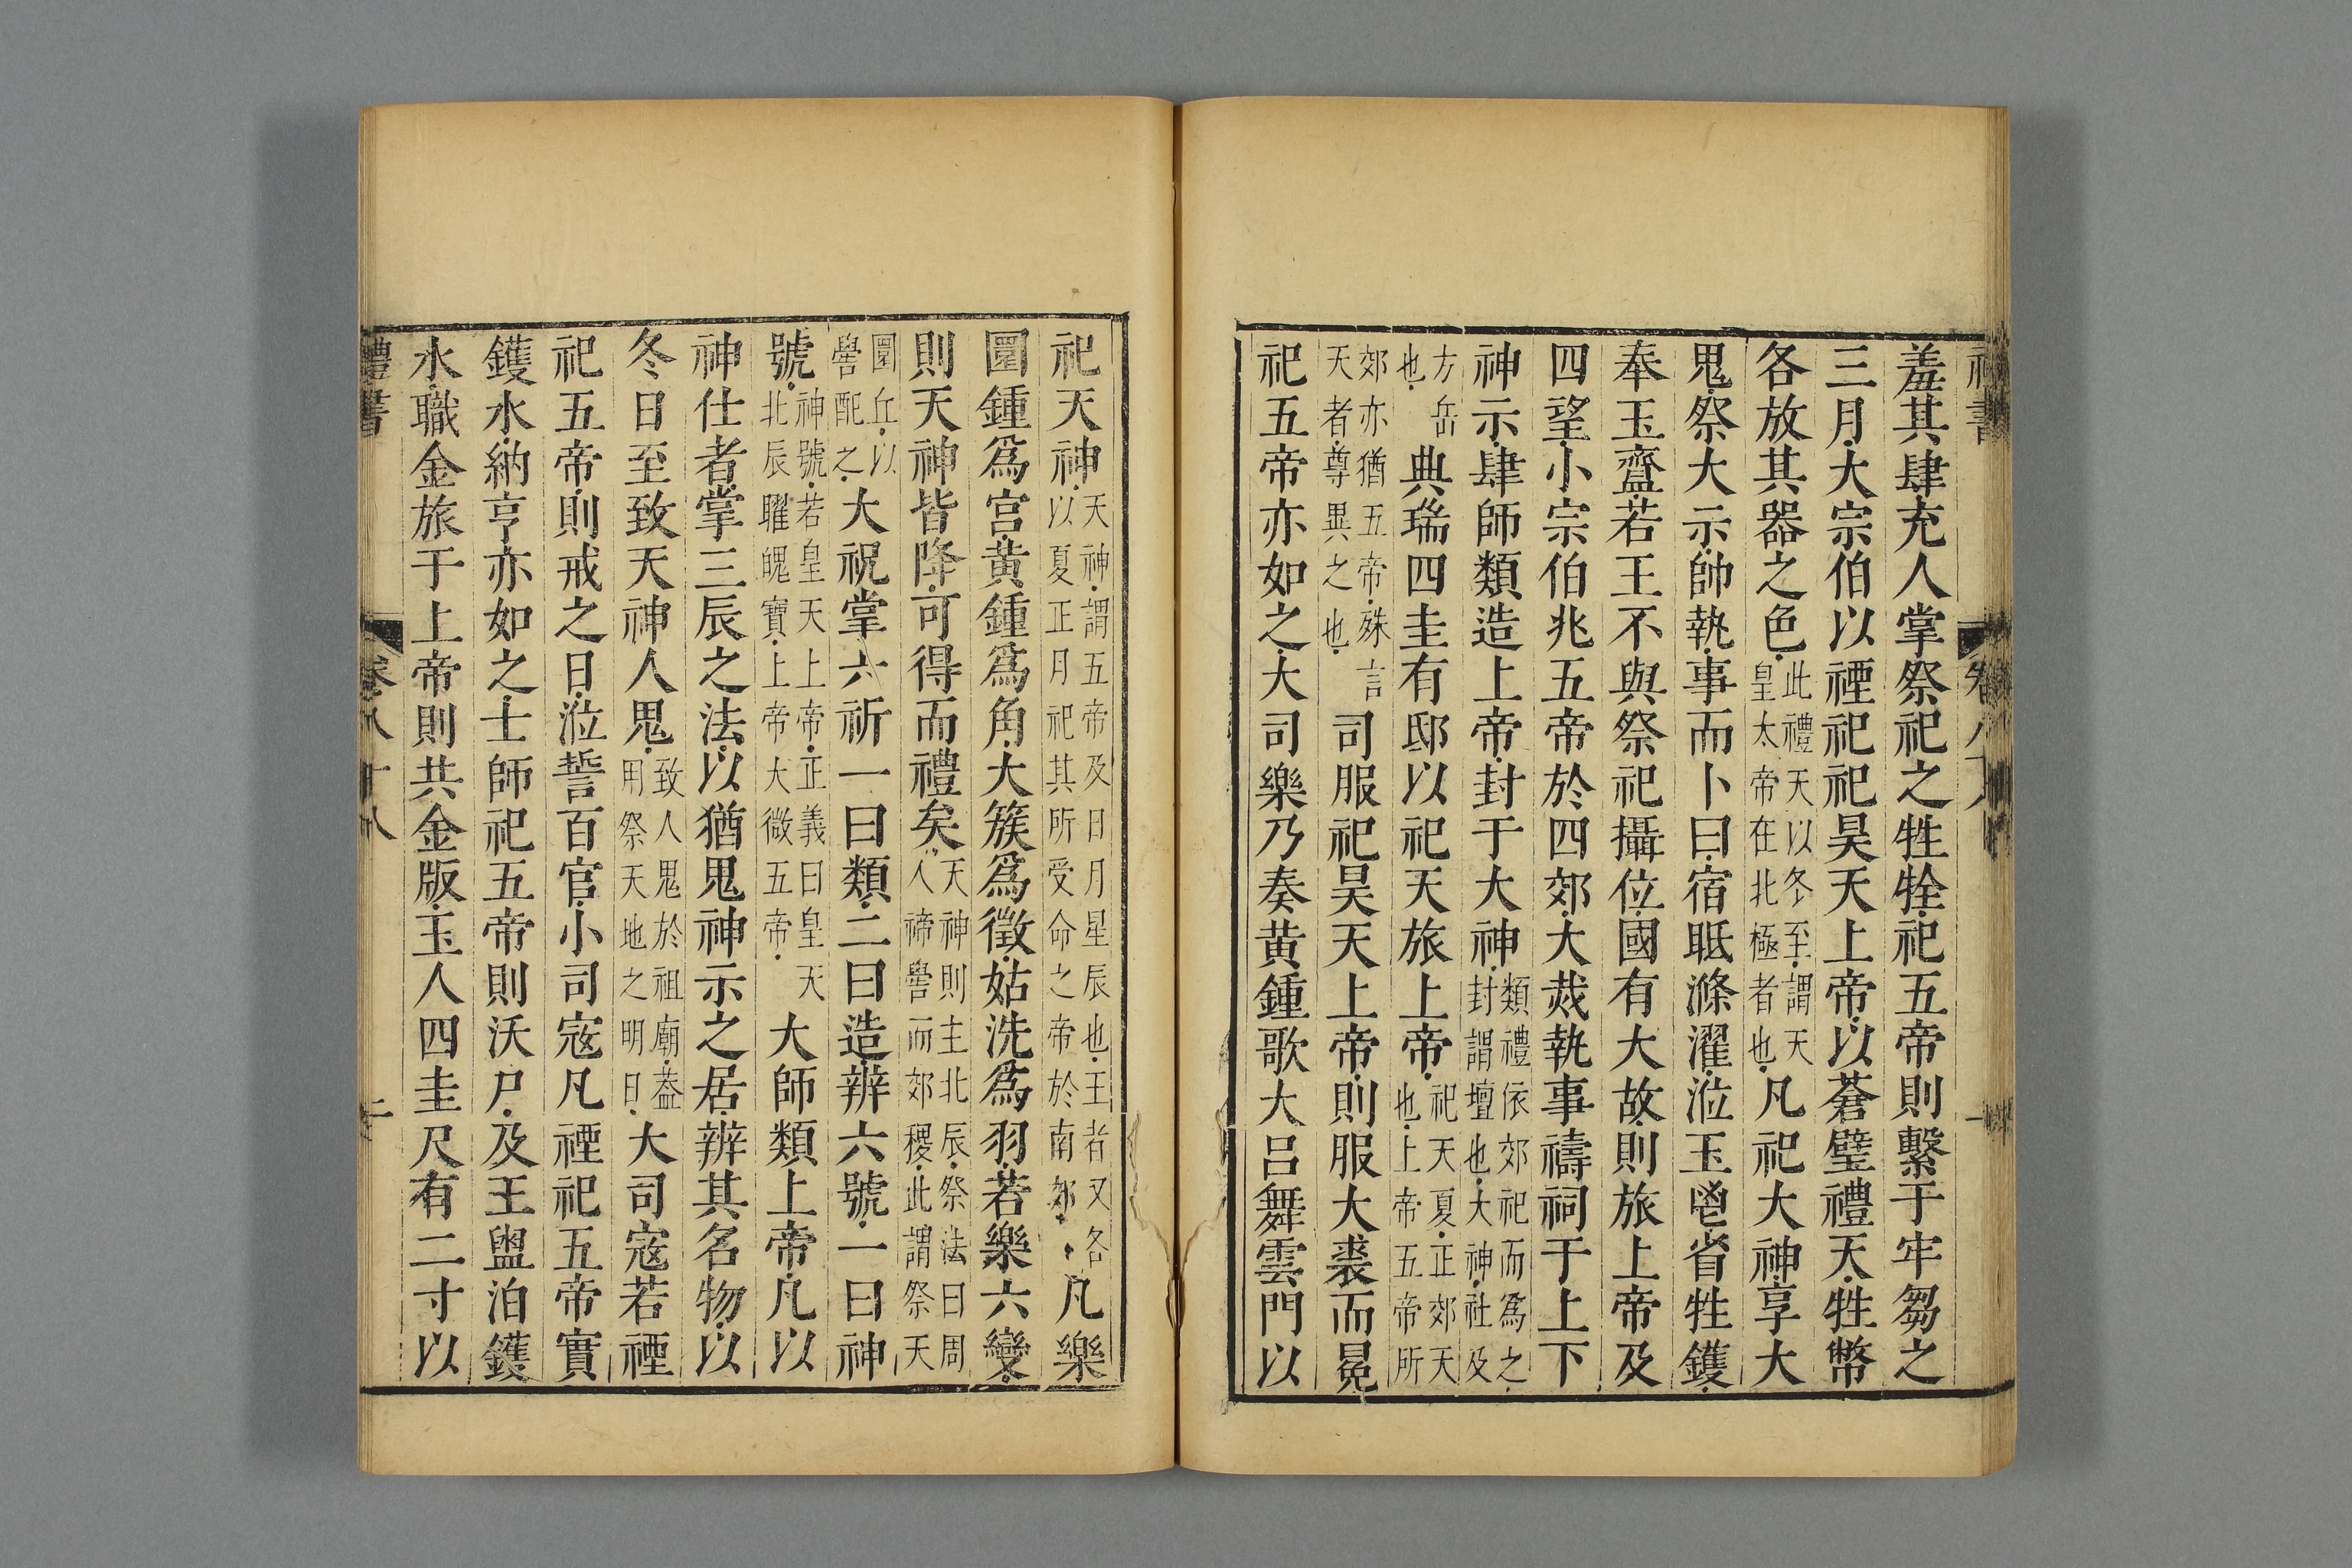 禮書 卷八十八 一
羞其肆充人掌祭祀之牲牷祀五帝則繫于牢芻之
三月大宗伯以禋祀祀昊天上帝以蒼璧禮天牲幣
各放其器之色此禮天以冬至謂天皇太帝在北極者也凡祀大神享大
鬼祭大示帥執事而卜曰宿眡滌濯涖玉鬯省牲鑊
奉玉齍若王不與祭祀攝位國有大故則旅上帝及
四望小宗伯兆五帝於四郊大烖執事禱祠于上下
神示肆師類造上帝封于大神類禮依郊祀而爲之封謂壇也大神社及
方岳也典瑞四圭有邸以祀天旅上帝祀天夏正郊天也上帝五帝所
郊亦猶五帝殊言天者尊異之也司服祀昊天上帝則服大裘而冕
祀五帝亦如之大司樂乃奏黄鍾歌大呂舞雲門以
祀天神天神謂五帝及日月星辰也王者又各以夏正月祀其所受命之帝於南郊凡樂
圜鍾爲宫黄鍾爲角大簇爲徵姑洗爲羽若樂六變
則天神皆降可得而禮矣天神則主北辰祭法曰周人禘嚳而郊稷此謂祭天
圜丘以嚳配之大祝掌六祈一曰類二曰造辨六號一曰神
號神號若皇天上帝正義曰皇天北辰曜魄寶上帝大微五帝大師類上帝凡以
神仕者掌三辰之法以猶鬼神示之居辨其名物以
冬日至致天神人鬼致人鬼於祖廟葢用祭天地之明日大司寇若禋
祀五帝則戒之日涖誓百官小司寇凡禋祀五帝實
鑊水納亨亦如之士師祀五帝則沃尸及王盥洎鑊
水職金旅于上帝則共金版玉人四圭尺有二寸以
禮書 卷八十八 二